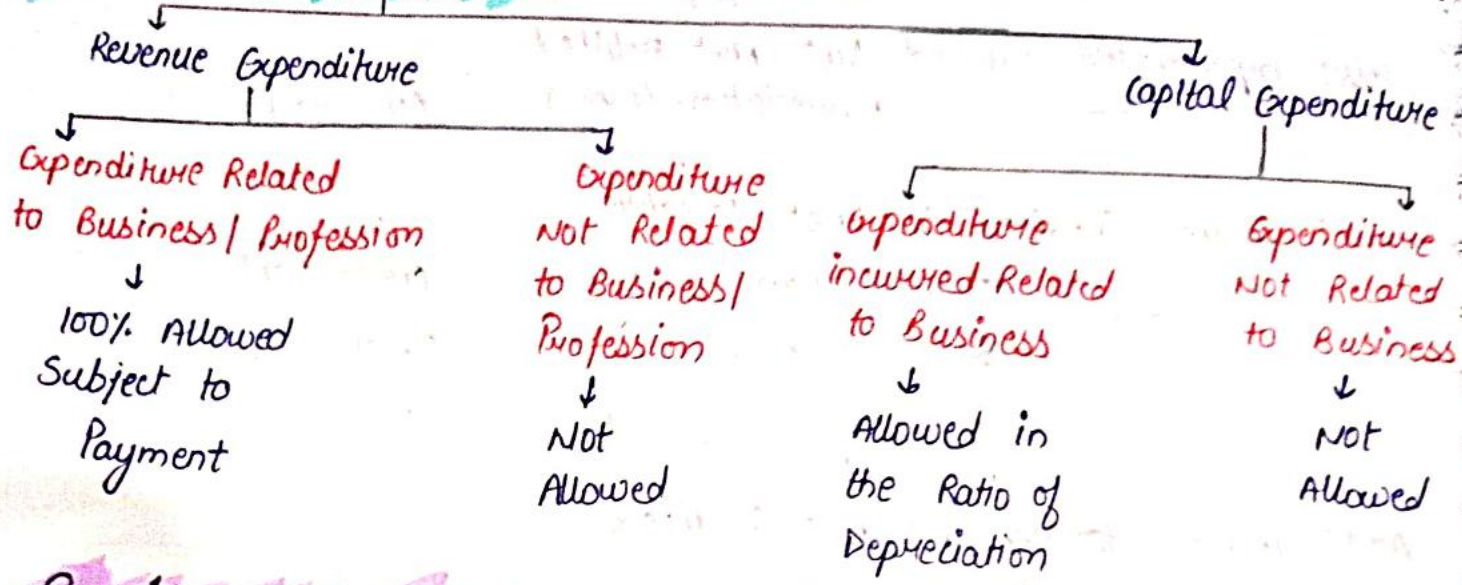 Revenue Expenditure
Capital Expenditure
Expenditure Related
to Business / Profession
100% Allowed
Subject to
Payment
Expenditure
Not Related
to Business /
Profession
Not
Allowed
Expenditure
incurred Related
to Business
Allowed in
the Ratio of
Depreciation
Expenditure
Not Related
to Business
Not
Allowed